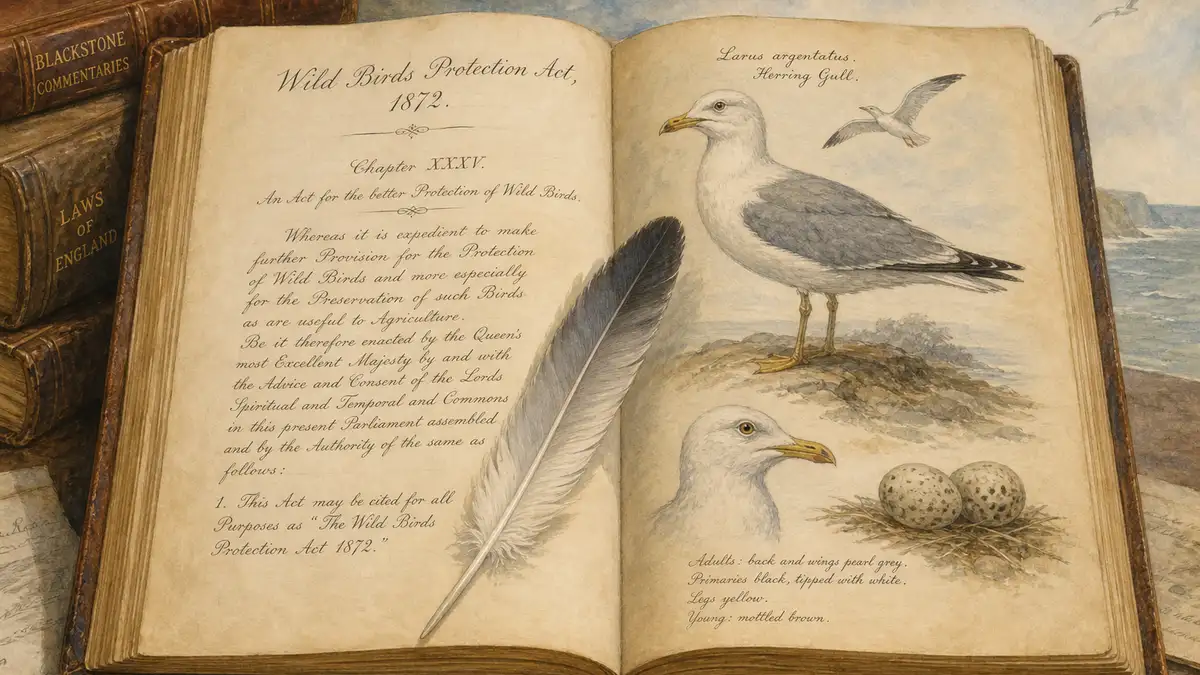 BLACKSTONE
COMMENTARIES
LAWS
OF
ENGLAND
Wild Birds Protection Act,
1872.
Chapter XXXV.
An Act for the better Protection of Wild Birds.
Whereas it is expedient to make
further Provision for the Protection
of Wild Birds and more especially
for the Preservation of such Birds
as are useful to Agriculture.
Be it therefore enacted by the Queen's
most Excellent Majesty by and with
the Advice and Consent of the Lords
Spiritual and Temporal and Commons
in this present Parliament assembled
and by the Authority of the same as
follows:
1. This Act may be cited for all
Purposes as "The Wild Birds
Protection Act 1872."
Larus argentatus.
Herring Gull.
Adults: back and wings pearl grey.
Primaries black, tipped with white.
Legs yellow.
Young: mottled brown.